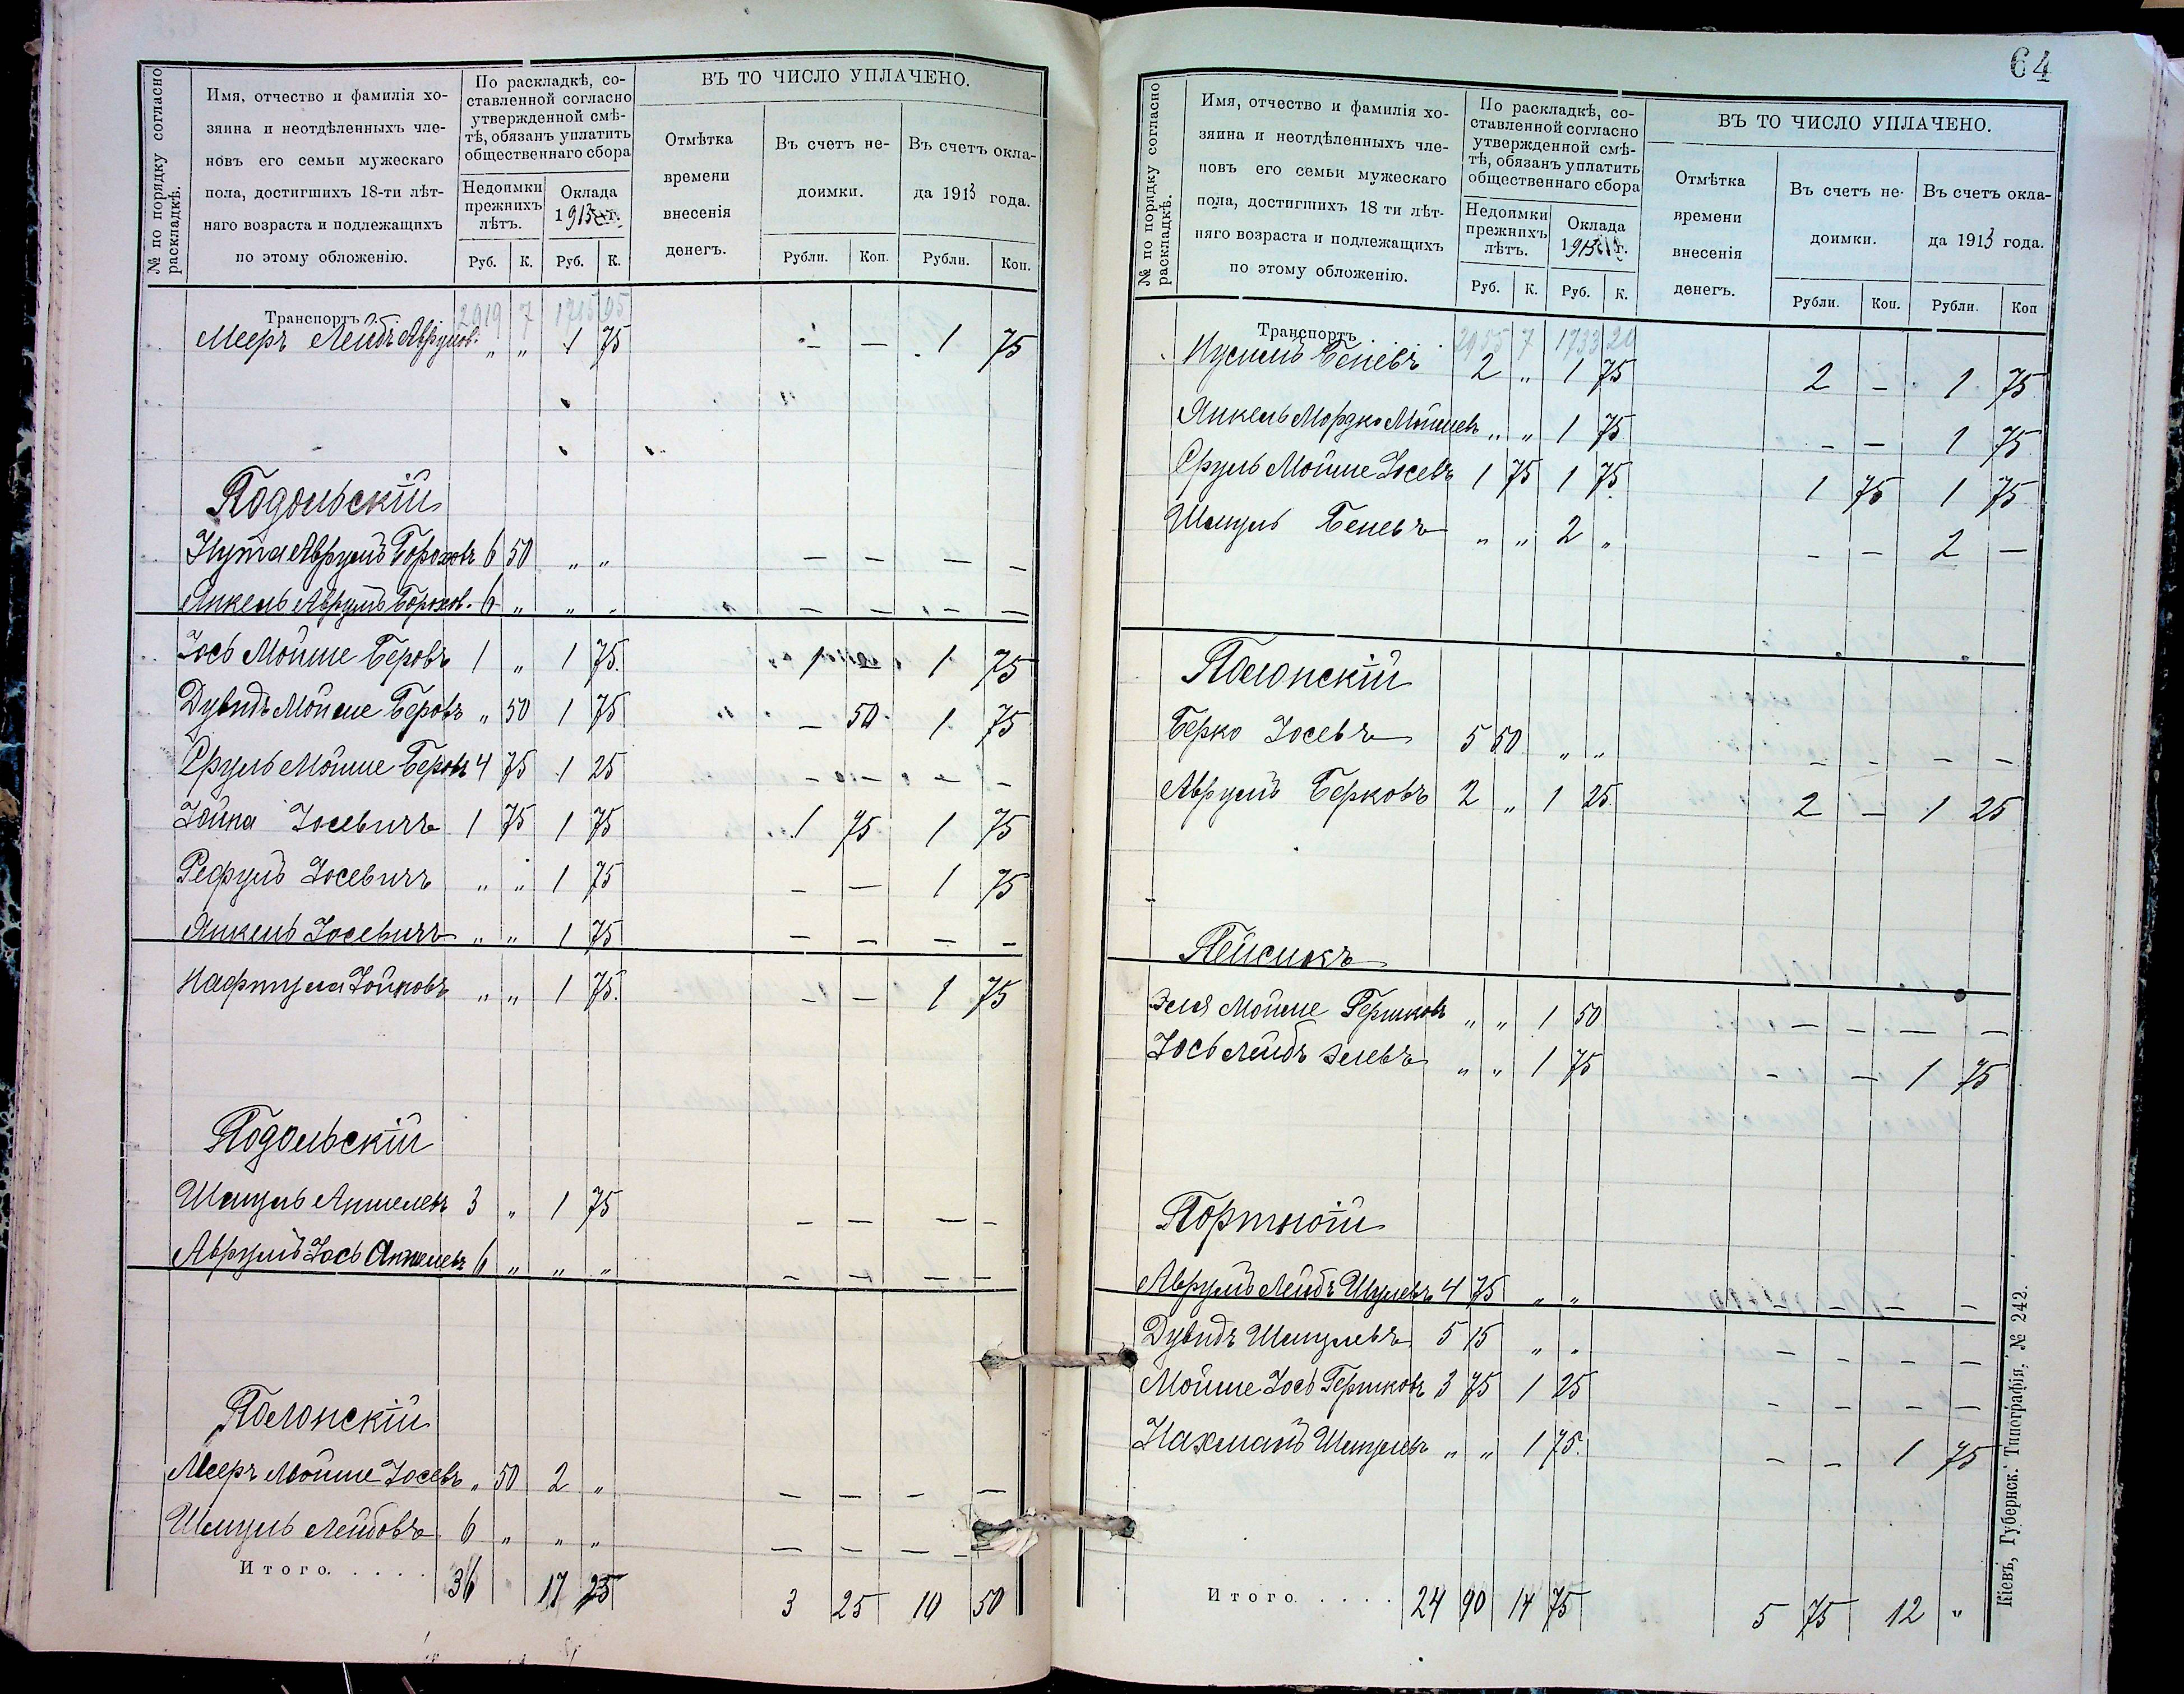 64
№ по порядку согласно раскладкѣ.
Имя, отчество и фамилія хо-
зяина и неотдѣленныхъ чле-
новъ его семьи мужескаго
пола, достигшихъ 18-ти лѣт-
няго возраста и подлежащихъ
по этому обложенію.
По раскладкѣ, со-
ставленной согласно
утвержденной смѣ-
тѣ, обязанъ уплатить
общественнаго сбора
Недоимки прежнихъ лѣтъ.
Оклада 1913 г.
Руб. К. Руб. К.
ВЪ ТО ЧИСЛО УПЛАЧЕНО.
Отмѣтка времени внесенія денегъ.
Въ счетъ не-доимки.
Въ счетъ окла-да 1913 года.
Рубли. Коп. Рубли. Коп.
Транспортъ 2919 7 1715 95
Мееръ Лейбъ Аврумов. " " 1 75 — — 1 75
Подольскій
Нута Аврумъ Бороховъ 6 50 " " — — — —
Янкель Аврумъ Борохов. 6 " " " — — — —
Іось Мойше Беровъ 1 " 1 75 1 — 1 75
Дувидъ Мойше Беровъ " 50 1 75 — 50 1 75
Сруль Мойше Беровъ 4 75 1 25 — — — —
Іойна Іосевичъ 1 75 1 75 1 75 1 75
Рефулъ Іосевичъ " " 1 75 — — 1 75
Янкель Іосевичъ " " 1 75 — — — —
Нафтула Іойновъ " " 1 75 — — 1 75
Подольскій
Шмуль Аншелевъ 3 " 1 75 — — — —
Аврумъ Іось Аншелевъ 6 " " " — — — —
Полонскій
Мееръ Мойше Іосевъ " 50 2 " — — — —
Шмуль Лейбовъ 6 " " " — — — —
Итого. . . . . 36 17 25 3 25 10 50
№ по порядку согласно раскладкѣ.
Имя, отчество и фамилія хо-
зяина и неотдѣленныхъ чле-
новъ его семьи мужескаго
пола, достигшихъ 18 ти лѣт-
няго возраста и подлежащихъ
по этому обложенію.
По раскладкѣ, со-
ставленной согласно
утвержденной смѣ-
тѣ, обязанъ уплатить
общественнаго сбора
Недоимки прежнихъ лѣтъ.
Оклада 1913 г.
Руб. К. Руб. К.
ВЪ ТО ЧИСЛО УПЛАЧЕНО.
Отмѣтка времени внесенія денегъ.
Въ счетъ не-доимки.
Въ счетъ окла-да 1913 года.
Рубли. Коп. Рубли. Коп
Транспортъ 2955 7 1733 20
Нусимъ Беневъ 2 " 1 75 2 — 1 75
Янкель Мордко Мошкевъ " " 1 75 — — 1 75
Сруль Мойше Іосевъ 1 75 1 75 1 75 1 75
Шмуль Беневъ " " 2 " — — 2 —
Полонскій
Берко Іосевъ 5 50 " " — — — —
Аврумъ Берковъ 2 " 1 25 2 — 1 25
Пейсикъ
Эля Мойше Гершковъ " " 1 50 — — — —
Іось Лейбъ Элевъ " " 1 75 — — 1 75
Портной
Аврумъ Лейбъ Шулевъ 4 75 " " — — — —
Дувидъ Шмулевъ 5 15 " " — — — —
Мойше Іось Гершковъ 3 75 1 25 — — — —
Нахманъ Шмулевъ " " 1 75 — — 1 75
Итого. . . . . 24 90 14 75 5 75 12 "
Кіевъ, Губернск. Типографія. № 242.